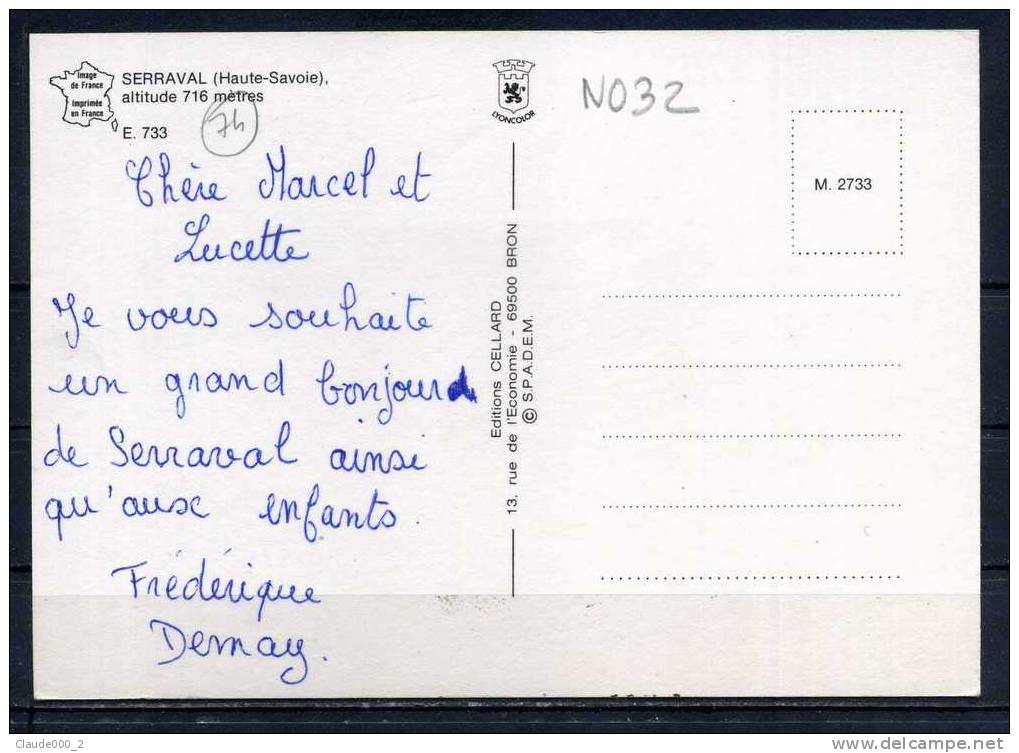 Image
de France
Imprimée
en France
SERRAVAL (Haute-Savoie),
altitude 716 mètres
E. 733
74
LYONCOLOR
N032
M. 2733
Chère Marcel et
Lucette
Je vous souhaite
un grand bonjour
de Serraval ainsi
qu'aux enfants.
Frédérique
Demay.
Editions CELLARD
13, rue de l'Economie - 69500 BRON
© S.P.A.D.E.M.
Claude000_2
www.delcampe.net